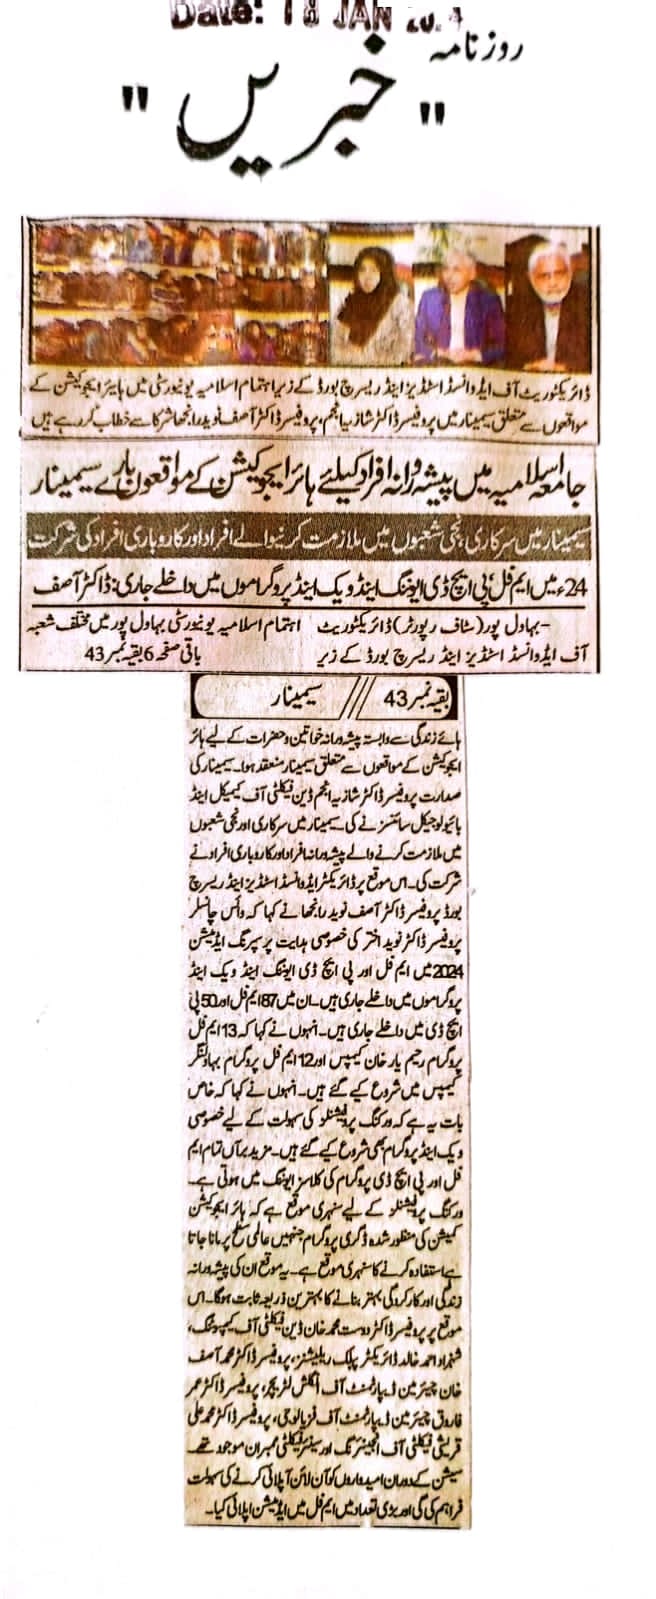 Date: 18 JAN 2024
روزنامہ
"خبریں"
ڈائریکٹوریٹ آف ایڈوانسڈ اسٹڈیز اینڈ ریسرچ بورڈ کے زیر اہتمام اسلامیہ یونیورسٹی میں ہائیر ایجوکیشن کے
مواقعوں سے متعلق سیمینار میں پروفیسر ڈاکٹر شازیہ انجم، پروفیسر ڈاکٹر آصف نوید رانجھا شرکا سے خطاب کر رہے ہیں
جامعہ اسلامیہ میں پیشہ ورانہ افراد کیلئے ہائر ایجوکیشن کے مواقعوں بارے سیمینار
سیمینار میں سرکاری، نجی شعبوں میں ملازمت کرنیوالے افراد اور کاروباری افراد کی شرکت
24ء میں ایم فل، پی ایچ ڈی ایوننگ اینڈ ویک اینڈ پروگراموں میں داخلے جاری: ڈاکٹر آصف
بہاول پور (سٹاف رپورٹر) ڈائریکٹوریٹ
آف ایڈوانسڈ اسٹڈیز اینڈ ریسرچ بورڈ کے زیر
اہتمام اسلامیہ یونیورسٹی بہاول پور میں مختلف شعبہ
باقی صفحہ 6 بقیہ نمبر 43
بقیہ نمبر 43 // سیمینار
ہائے زندگی سے وابستہ پیشہ ورانہ خواتین و حضرات کے لیے ہائر
ایجوکیشن کے مواقعوں سے متعلق سیمینار منعقد ہوا۔ سیمینار کی
صدارت پروفیسر ڈاکٹر شازیہ انجم ڈین فیکلٹی آف کیمیکل اینڈ
بائیولوجیکل سائنسز نے کی۔ سیمینار میں سرکاری اور نجی شعبوں
میں ملازمت کرنے والے پیشہ ورانہ افراد اور کاروباری افراد نے
شرکت کی۔ اس موقع پر ڈائریکٹر ایڈوانسڈ اسٹڈیز اینڈ ریسرچ
بورڈ پروفیسر ڈاکٹر آصف نوید رانجھا نے کہا کہ وائس چانسلر
پروفیسر ڈاکٹر نوید اختر کی خصوصی ہدایت پر سپرنگ ایڈمیشن
2024 میں ایم فل اور پی ایچ ڈی ایوننگ اینڈ ویک اینڈ
پروگراموں میں داخلے جاری ہیں۔ ان میں 87 ایم فل اور 50 پی
ایچ ڈی میں داخلے جاری ہیں۔ انہوں نے کہا کہ 13 ایم فل
پروگرام رحیم یار خان کیمپس اور 12 ایم فل پروگرام بہاولنگر
کیمپس میں شروع کیے گئے ہیں۔ انہوں نے کہا کہ خاص
بات یہ ہے کہ ورکنگ پروفیشنلز کی سہولت کے لیے خصوصی
ویک اینڈ پروگرام بھی شروع کیے گئے ہیں۔ مزید برآں تمام ایم
فل اور پی ایچ ڈی پروگرام کی کلاسز ایوننگ میں ہوتی ہے۔
ورکنگ پروفیشنلز کے لیے سنہری موقع ہے کہ ہائر ایجوکیشن
کمیشن کی منظور شدہ ڈگری پروگرام جنہیں عالمی سطح پر مانا جاتا
ہے استفادہ کرنے کا سنہری موقع ہے۔ یہ موقع ان کی پیشہ ورانہ
زندگی اور کارکردگی بہتر بنانے کا بہترین ذریعہ ثابت ہوگا۔ اس
موقع پر پروفیسر ڈاکٹر دوست محمد خان ڈین فیکلٹی آف کمپیوٹنگ،
شہزاد احمد خالد ڈائریکٹر پبلک ریلیشنز، پروفیسر ڈاکٹر محمد آصف
خان چیئرمین ڈیپارٹمنٹ آف انگلش لٹریچر، پروفیسر ڈاکٹر عمر
فاروق چیئرمین ڈیپارٹمنٹ آف فزیالوجی، پروفیسر ڈاکٹر محمد علی
قریشی فیکلٹی آف انجینئرنگ اور سینئر فیکلٹی ممبران موجود تھے۔
سیشن کے دوران امیدواروں کو آن لائن اپلائی کرنے کی سہولت
فراہم کی گئی اور بڑی تعداد میں ایم فل میں ایڈمیشن اپلائی کیا۔